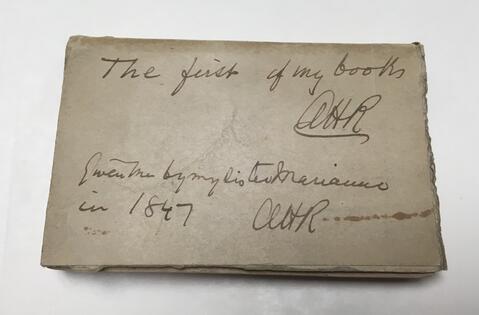 The first of my books
AHR
Given me by my sister Marianne
in 1847 AHR